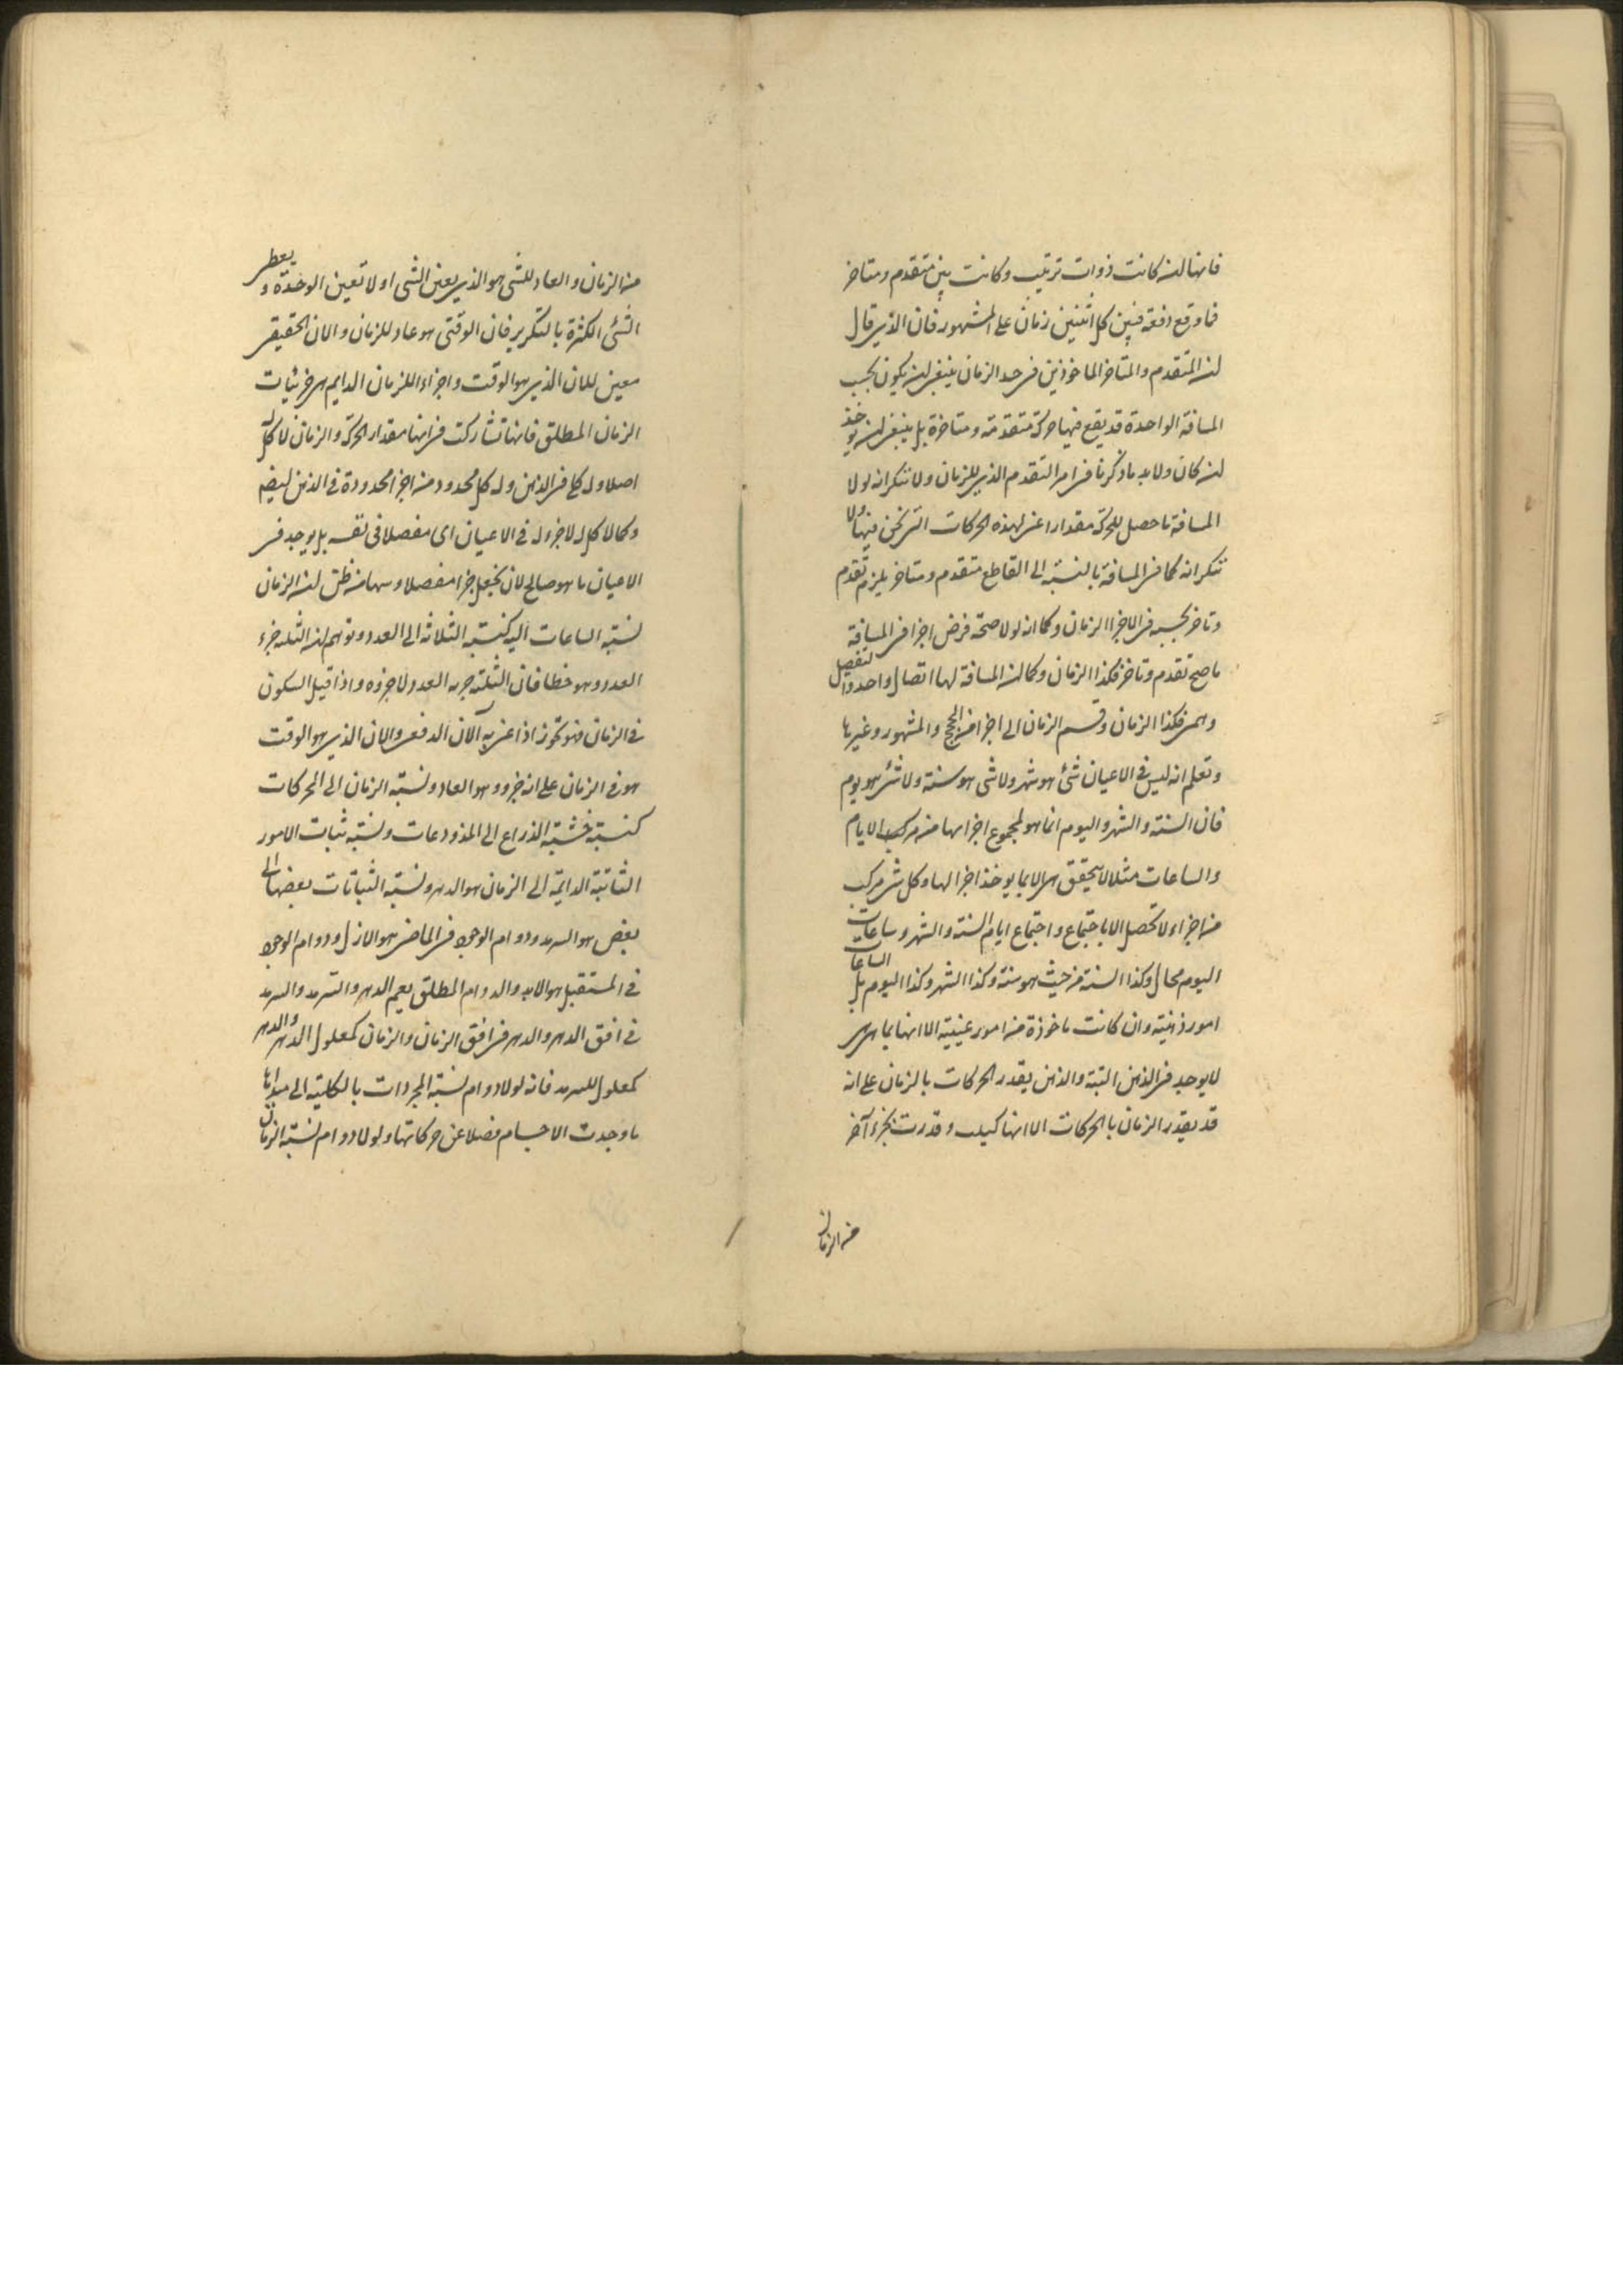 فانها ان كانت ذوات ترتيب وكانت بين متقدم ومتاخر
فما وقع دفعة فبين كل اثنتين زمان على المشهور فان الذي قال
ان المتقدم والمتاخر الماخوذين في حد الزمان ينبغي ان يكون بحسب
المسافة الواحدة قد يقع فيها حركة متقدمة ومتاخرة بل ينبغي ان يوخذ
ان كان ولا بد ما ذكرنا في امر التقدم الذي للزمان ولا ننكر انه لولا
المسافة ما حصل للحركة مقدار اعني لهذه الحركات التي نحن فيها ولا
ننكر انه كما في المسافة بالنسبة الى القاطع متقدم ومتاخر يلزم تقدم
وتاخر بحسبه في الاجزا الزمان وكما انه لولا صحة فرض اجزا في المسافة
ما صح تقدم وتاخر فكذا الزمان وكما ان المسافة لها اتصال واحد وانفصل
وهمي فكذا الزمان وقسم الزمان الى اجزا من الحجج والشهور وغيرها
وتعلم انه ليس في الاعيان شئ هو شهر ولا شى هو سنة ولا شئ هو يوم
فان السنة والشهر واليوم انما هو لمجموع اجزا لها من مركب الايام
والساعات مثلا لا يتحقق هي الا بما يوخذ اجزا لها وكل شئ مركب
من اجزاء لا تحصل الا باجتماع واجتماع ايام السنة والشهر وساعات
اليوم محال وكذا السنة من حيث هو سنة وكذا الشهر وكذا اليوم بل الساعات
امور ذهنية وان كانت ماخوذة من امور عينية الا انها بما هي هي
لا يوجد في الذهن البتة والذهن يقدر الحركات بالزمان على انه
قد يقدر الزمان بالحركات الا انها كيلت وقدرت بجزء آخر
من الزمان
من الزمان والعاد للشى هو الذي يعين الشى اولا تعين الوحدة ويعطي
الشئ الكثرة بالتكرير فان الوقتى هو عاد للزمان والان الحقيقي
معين للان الذي هو الوقت واجزاء الزمان الدايم هي جزئيات
الزمان المطلق فانها تشاركت في انها مقدار الحركة والزمان لا كل له
اصلا وله كلي في الذهن وله كل محدود من اجزا محدودة في الذهن ايضا
وكما لا كل له لا جزء له في الاعيان اى مفصلا في نفسه بل يوجد في
الاعيان ما هو صالح لان يجعل جزا مفصلا وسها من ظن ان الزمان
نسبة الساعات اليه كنسبة الثلاثة الى العدد وتوهم ان الثلثة جزء
العدد وهو خطا فان الثلثة جزئه العدد لا جزوه واذا قيل السكون
في الزمان فهو تجوز اذا عنى به الآن الدفعي والان الذي هو الوقت
هو في الزمان على انه جزوه وهو العاد ونسبة الزمان الى الحركات
كنسبة خشبة الذراع الى المذروعات ونسبة ثبات الامور
الثابتة الدايمة الى الزمان هو الدهر ونسبة الثباتات بعضها الى
بعض هو السرمد ودوام الوجود في الماضي هو الازل ودوام الوجود
في المستقبل هو الابد والدوام المطلق يعم الدهر والسرمد والسرمد
في افق الدهر والدهر في افق الزمان والزمان كمعلول الدهر والدهر
كمعلول للسرمد فانه لولا دوام نسبة المجردات بالكلية الى مبدائها
ما وجدت الاجسام فضلا عن حركاتها ولولا دوام نسبة الزمان